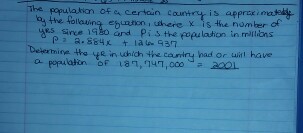 The population of a certain country is approximately
by the following equation, where x is the number of
yrs since 1980 and P is the population in millions
P = 2.884x + 126.937
Determine the yr in which the country had or will have
a population of 187,747,000 = 2001